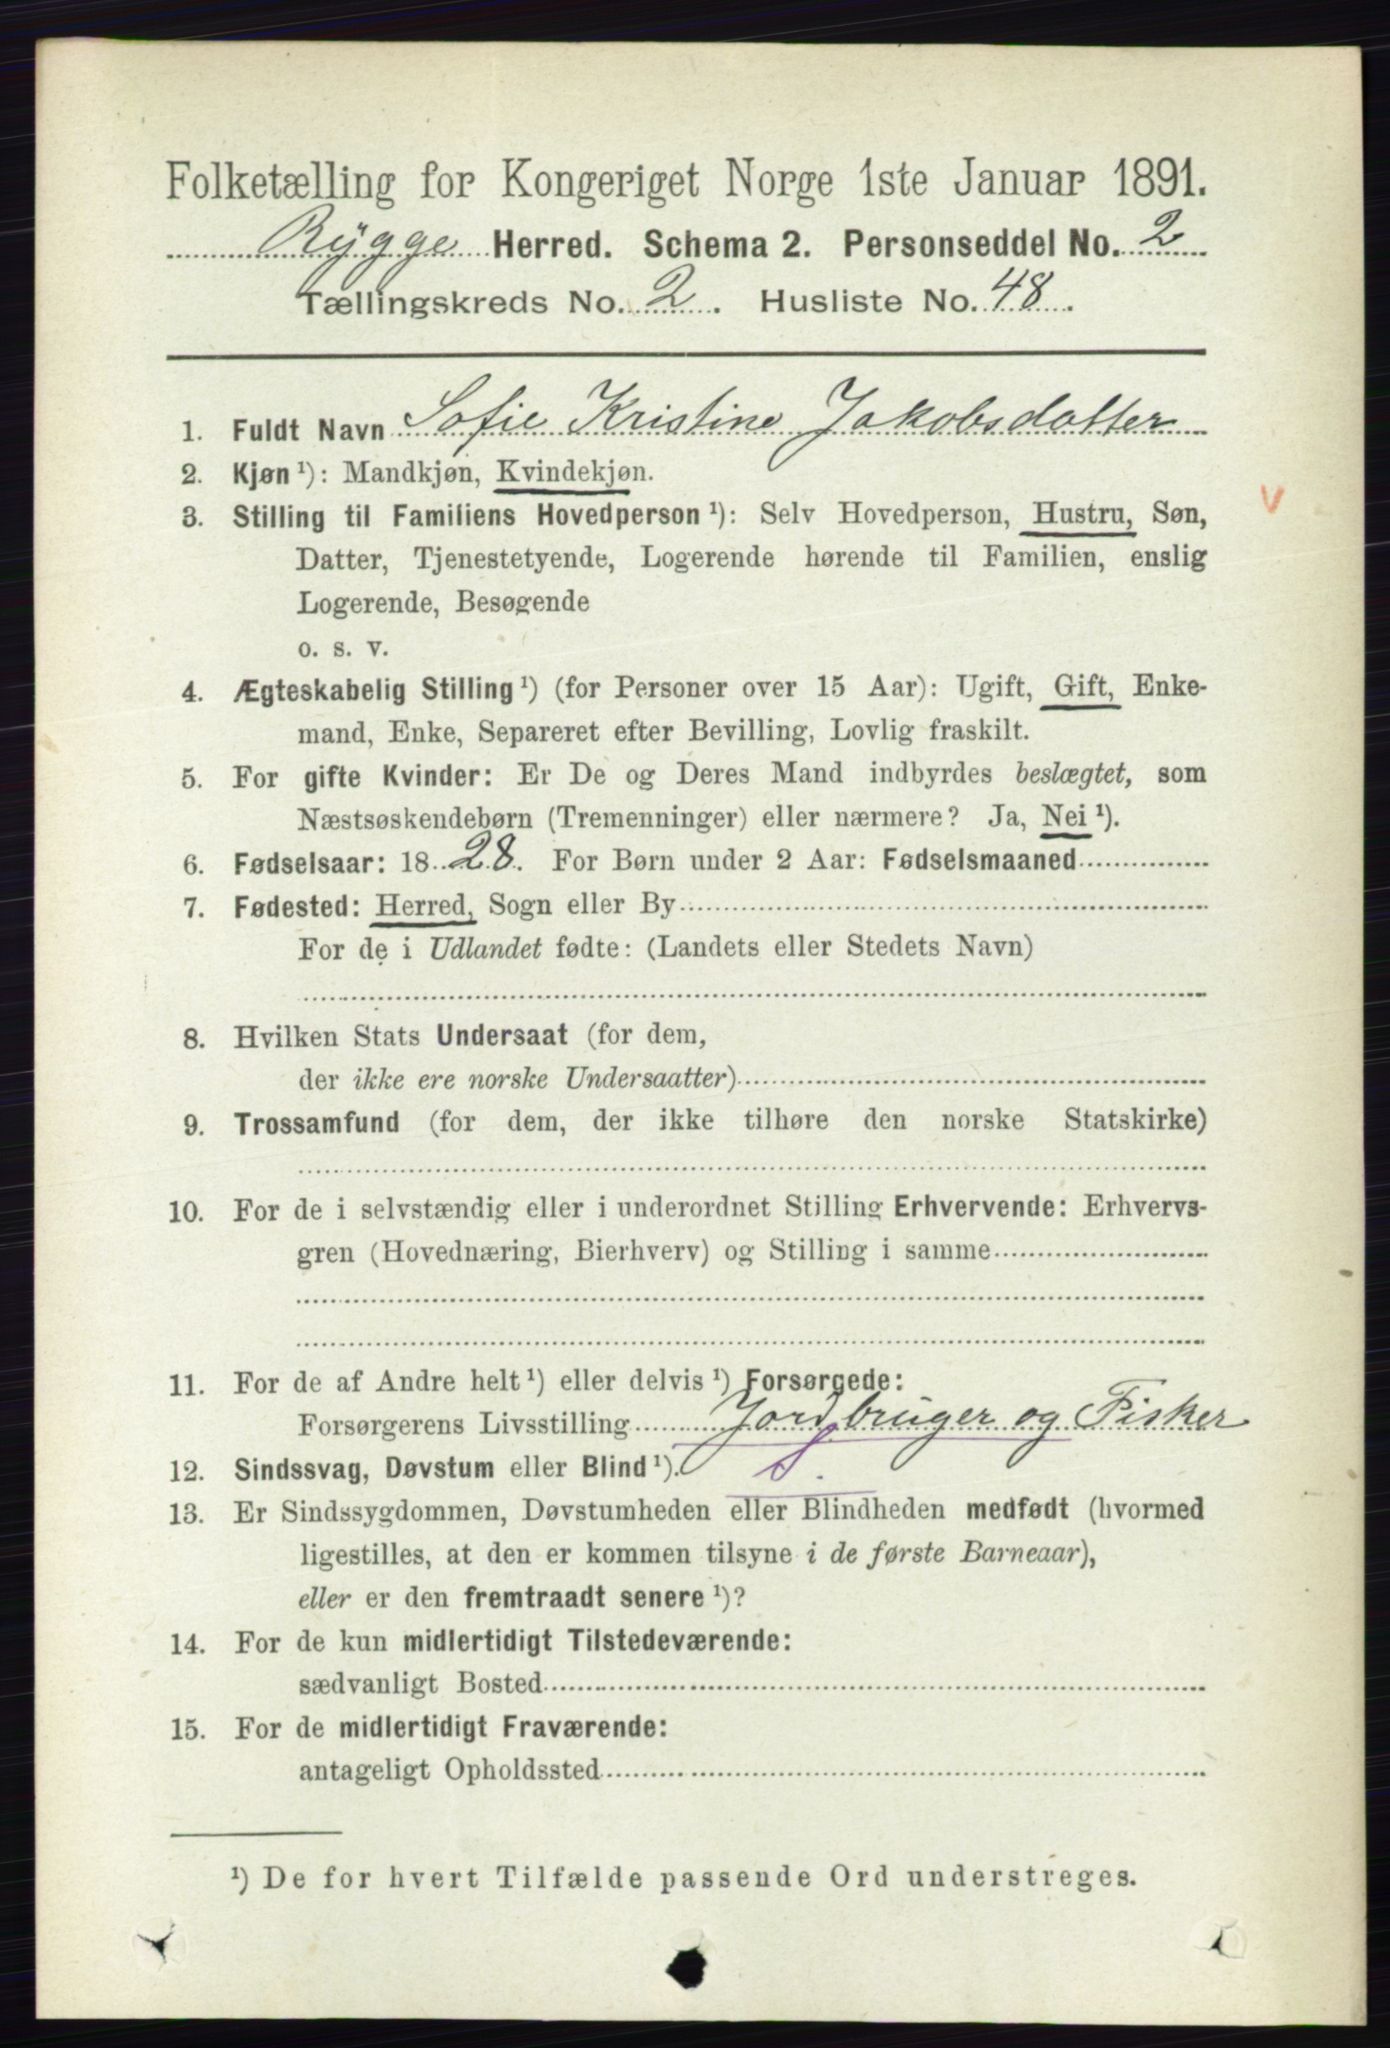 Folketælling for Kongeriget Norge 1ste Januar 1891.
Rygge Herred. Schema 2. Personseddel No. 2
Tællingskreds No. 2. Husliste No. 48.
1. Fuldt Navn Sofie Kristine Jakobsdatter
2. Kjøn ¹): Mandkjøn, Kvindekjøn.
v
3. Stilling til Familiens Hovedperson ¹): Selv Hovedperson, Hustru, Søn,
Datter, Tjenestetyende, Logerende hørende til Familien, enslig
Logerende, Besøgende
o. s. v.
4. Ægteskabelig Stilling ¹) (for Personer over 15 Aar): Ugift, Gift, Enke-
mand, Enke, Separeret efter Bevilling, Lovlig fraskilt.
5. For gifte Kvinder: Er De og Deres Mand indbyrdes beslægtet, som
Næstsøskendebørn (Tremenninger) eller nærmere? Ja, Nei ¹).
6. Fødselsaar: 18 28. For Børn under 2 Aar: Fødselsmaaned
7. Fødested: Herred, Sogn eller By
For de i Udlandet fødte: (Landets eller Stedets Navn)
8. Hvilken Stats Undersaat (for dem,
der ikke ere norske Undersaatter)
9. Trossamfund (for dem, der ikke tilhøre den norske Statskirke)
10. For de i selvstændig eller i underordnet Stilling Erhvervende: Erhvervs-
gren (Hovednæring, Bierhverv) og Stilling i samme
11. For de af Andre helt ¹) eller delvis ¹) Forsørgede:
Forsørgerens Livsstilling Jordbruger og Fisker
12. Sindssvag, Døvstum eller Blind ¹). S.
13. Er Sindssygdommen, Døvstumheden eller Blindheden medfødt (hvormed
ligestilles, at den er kommen tilsyne i de første Barneaar),
eller er den fremtraadt senere ¹)?
14. For de kun midlertidigt Tilstedeværende:
sædvanligt Bosted
15. For de midlertidigt Fraværende:
antageligt Opholdssted
¹) De for hvert Tilfælde passende Ord understreges.